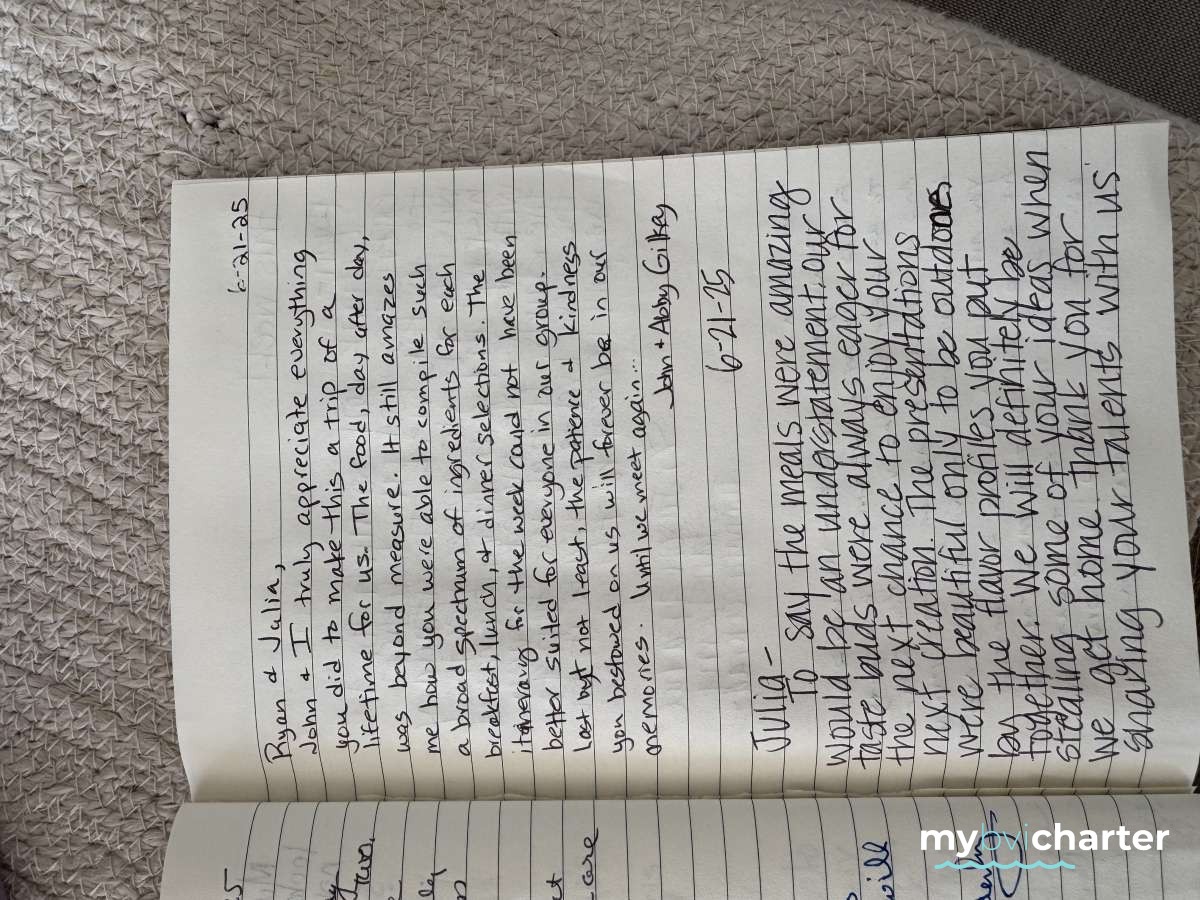 6-21-25
Ryan + Julia,
John + I truly appreciate everything
you did to make this a trip of a
lifetime for us. The food, day after day,
was beyond measure. It still amazes
me how you were able to compile such
a broad spectrum of ingredients for each
breakfast, lunch, + dinner selections. The
itinerary for the week could not have been
better suited for everyone in our group.
Last but not least, the patience + kindness
you bestowed on us will forever be in our
memories. Until we meet again...
John + Abby Gilkay
6-21-25
Julia -
To say the meals were amazing
would be an understatement. Our
taste buds were always eager for
the next chance to enjoy your
next creation. The presentations
were beautiful only to be outdone
by the flavor profiles you put
together. We will definitely be
stealing some of your ideas when
we get home. Thank you for
sharing your talents with us
will
care
mybvicharter